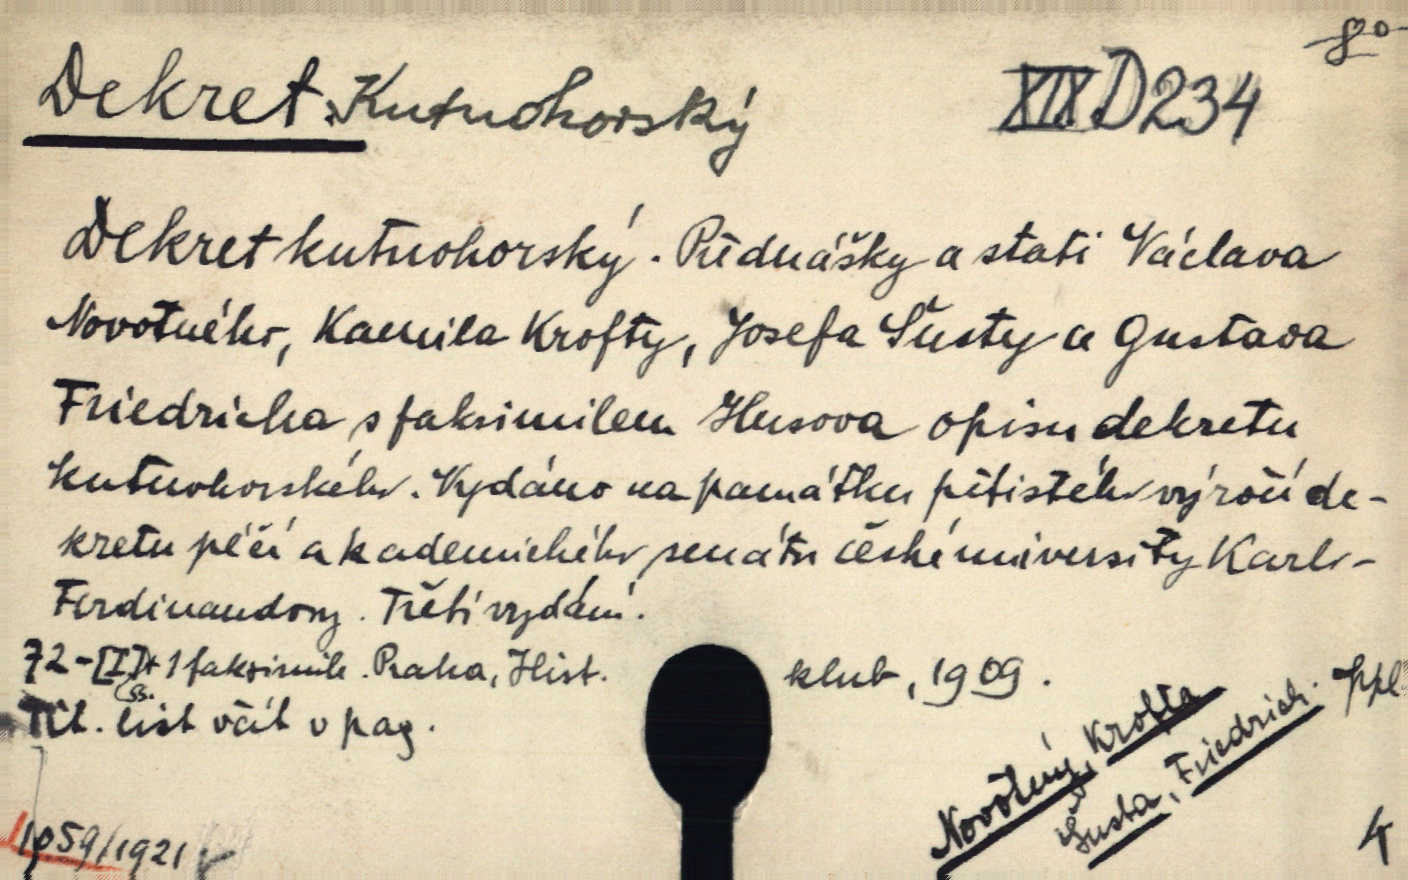 8°
Dekret Kutnohorský XIX D 234
Dekret kutnohorský. Přednášky a stati Václava
Novotného, Kamila Krofty, Josefa Šusty a Gustava
Friedricha s faksimilem Husova opisu dekretu
kutnohorského. Vydáno na památku pětistého výročí de-
kretu péčí akademického senátu české university Karlo-
Ferdinandovy. Třetí vydání.
72-[I]+1 faksimile. Praha, Hist. klub, 1909.
Tit. list včít. v pag.
Novotný, Krofta
Šusta, Friedrich.
ppl.
1059/1921
4